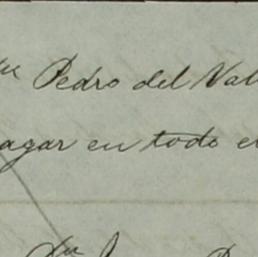 Pedro del Val
agar en todo e